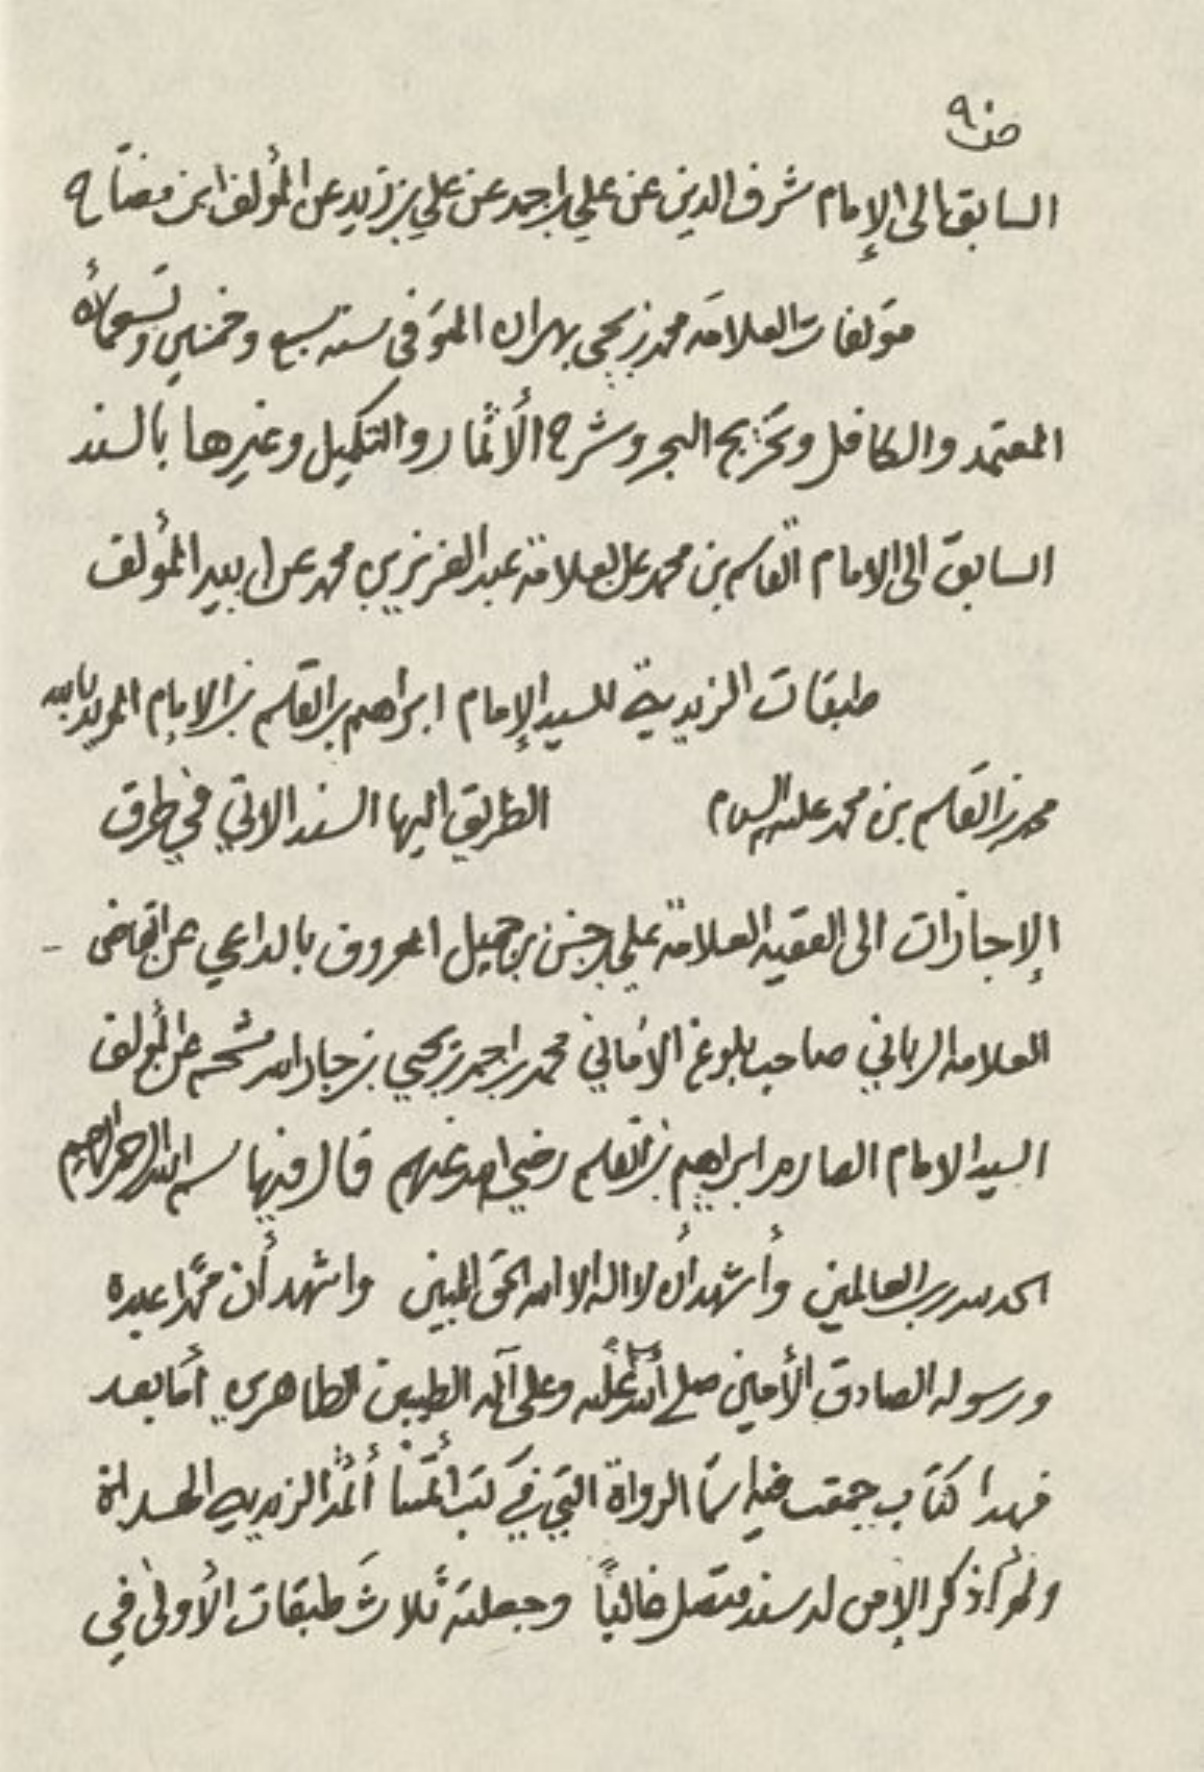 ص ٩
السابق الى الإمام شرف الدين عن علي بن احمد عن علي بن زيد عن المؤلف ابن مفتاح
مؤلفات العلامة محمد بن يحي بهران المتوفى سنة سبع وخمسين وتسعمائة
المعتمد والكافل وتخريج البحر وشرح الأثمار والتكميل وغيرها بالسند
السابق الى الامام القاسم بن محمد عن العلامة عبد العزيز بن محمد عن ابيه المؤلف
طبقات الزيدية للسيد الإمام ابراهيم بن القاسم بن الامام المؤيد بالله
محمد بن القاسم بن محمد عليه السلام الطريق اليها السند الاتي في طرق
الإجازات الى الفقيه العلامة علي بن حسن بن جميل المعروف بالداعي عن القاضى
العلامة الرباني صاحب بلوغ الاماني محمد بن احمد بن يحيي بن جار الله مشحم عن المؤلف
السيد الامام الصارم ابراهيم بن القاسم رضي الله عنهم قال فيها بسم الله الرحمن الرحيم
الحمد لله رب العالمين وأشهد أن لا اله الا الله الحق المبين واشهد أن محمدًا عبده
ورسوله الصادق الأمين صلى الله عليه وعلى آله الطيبين الطاهرين أما بعد
فهذا كتاب جمعت فيه اسما الرواة التي في كتب أئمتنا أئمة الزيدية الهداة
ولم أذكر الا من له سند متصل غالبًا وجعلته ثلاث طبقات الأولى في